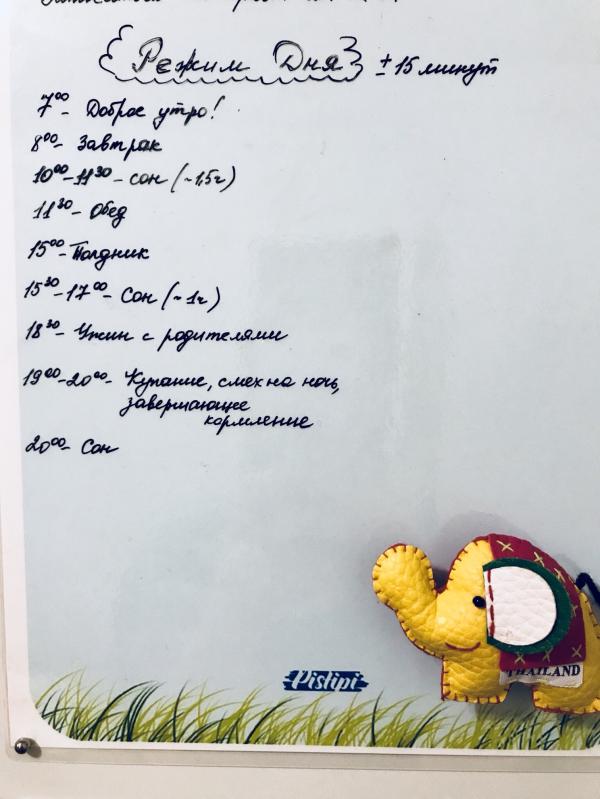 Режим Дня ± 15 минут
7⁰⁰- Доброе утро!
8⁰⁰- Завтрак
10⁰⁰-11³⁰- сон (~1,5ч)
11³⁰- Обед
15⁰⁰- Полдник
15³⁰-17⁰⁰- Сон (~1ч)
18³⁰- Ужин с родителями
19⁰⁰-20⁰⁰- Купание, смех на ночь,
завершающее
кормление
20⁰⁰- Сон
THAILAND
Pislipi